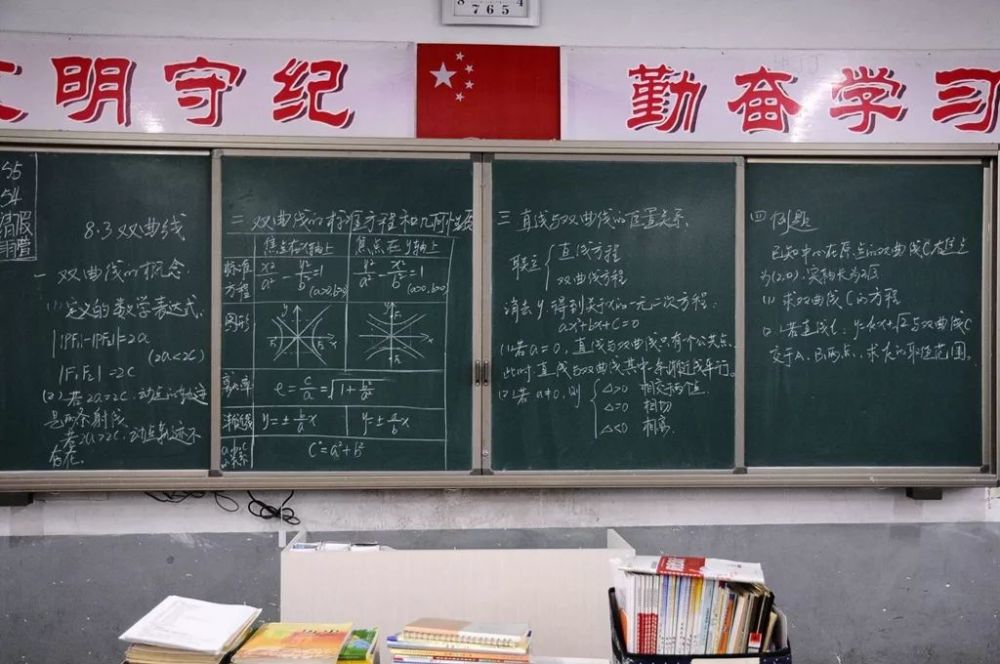 8 7 6 5 4
文明守纪
勤奋学习
55
54
8.3 双曲线
一 双曲线的概念.
(1) 定义的数学表达式.
||PF₁|-|PF₂||=2a
(2a<2c)
|F₁F₂|=2c
(2) 若2a=2c, 动点的轨迹
是两条射线
若2a>2c, 动点轨迹不
存在.
二 双曲线的标准方程和几何性质
焦点在x轴上 焦点在y轴上
标准方程 x²/a² - y²/b² =1 (a>0,b>0) y²/a² - x²/b² =1 (a>0,b>0)
图形
离心率 e=c/a=√(1+b²/a²)
渐近线 y=±b/a x y=±a/b x
a.b.c的关系 c²=a²+b²
三 直线与双曲线的位置关系.
联立 { 直线方程
双曲线方程
消去y, 得到关于x的一元二次方程:
ax²+bx+c=0
(1) 若a=0, 直线与双曲线只有一个公共点.
此时直线与双曲线其中一条渐近线平行。
(2) 若a≠0, 则 { △>0 相交两个
△=0 相切
△<0 相离.
四 例题
已知中心在原点的双曲线C右焦点
为(2,0), 实轴长为
(1) 求双曲线C的方程
(2) 若直线l: y=kx+√2与双曲线C
交于A、B两点, 求k的取值范围。